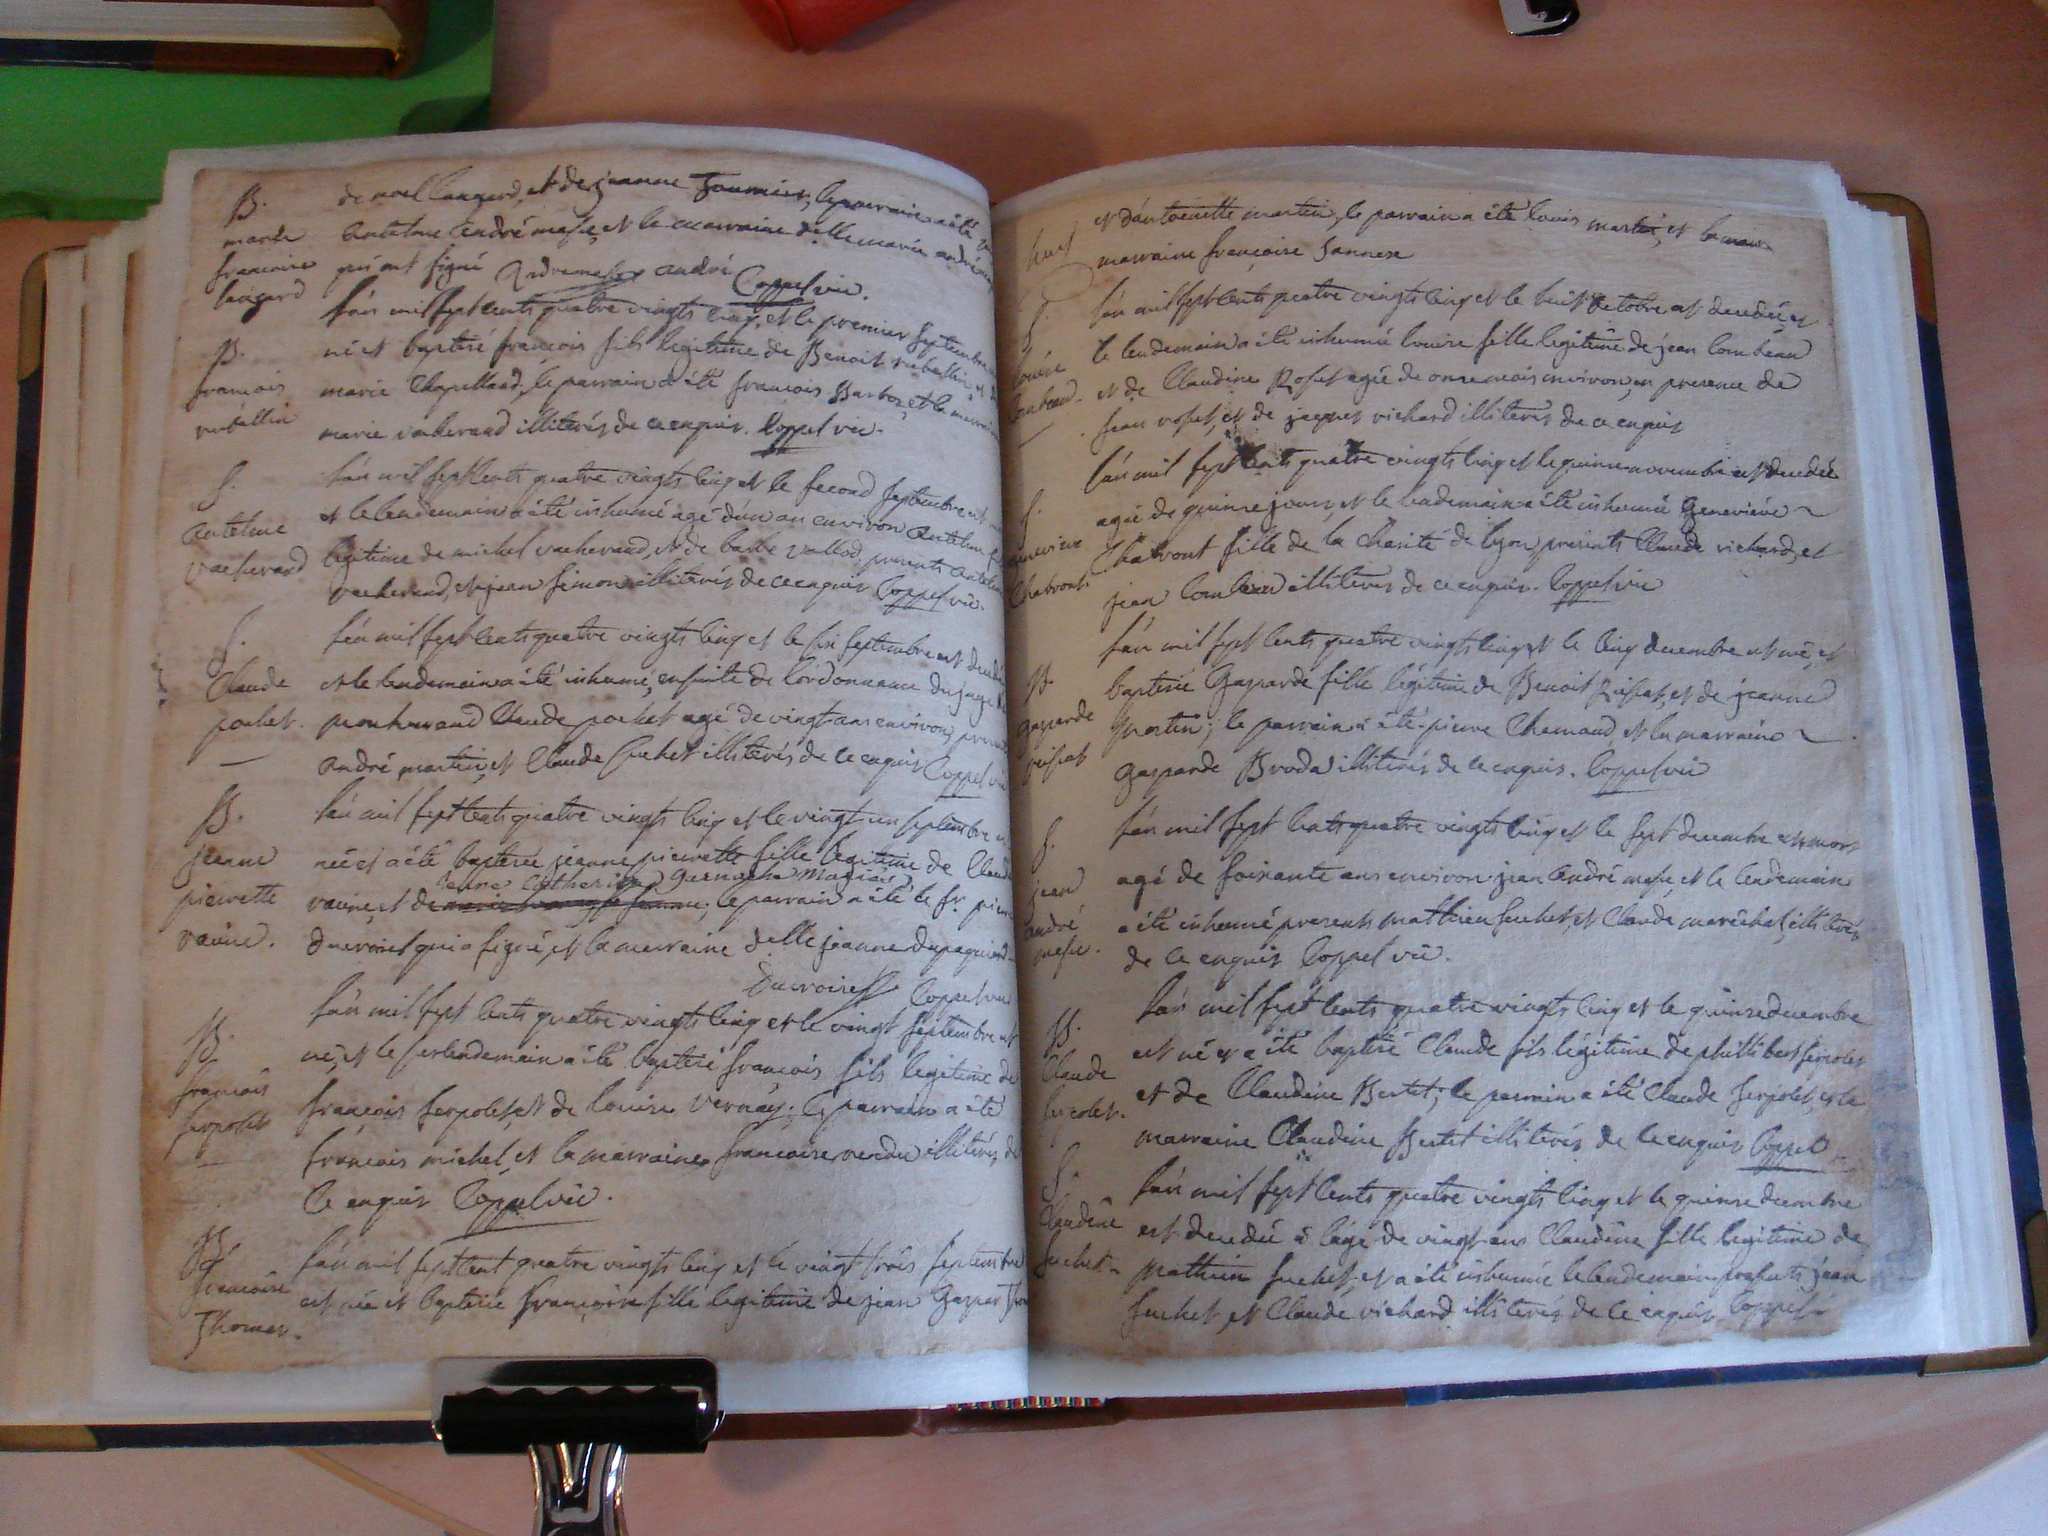 B.
marie
francoise
laugard
de noel laugard, et de jeanne fournier, le parrain a été
antelme andré messe, et la marraine delle marie andré
qui ont signé andré Coppel vic.
B.
francois
rubellin
l'an mil sept cents quatre vingts cinq, et le premier septembre
né et baptisé francois fils legitime de Benoit rubellin et de
marie Chapelland, le parrain a été francois Barbos, et la marraine
marie vacherand illiterés de ce enquis. Coppel vic.
S.
antelme
vacherand
l'an mil sept cents quatre vingts cinq et le second septembre est
et le lendemain a été inhumé agé d'un an environ antelme
legitime de michel vacherand, et de barbe vallod, presents antelme
vacherand, et jean simon illiterés de ce enquis Coppel vic.
S.
Claude
pochet.
l'an mil sept cents quatre vingts cinq et le six septembre est decedé
et le lendemain a été inhumé, ensuite de l'ordonnance du juge de
Claude pochet agé de vingt ans environ,
andré martin, et Claude suchet illiterés de ce enquis Coppel vic
B.
jeanne
pierrette
l'an mil sept cents quatre vingts cinq et le vingt un septembre
née et a été baptisée jeanne pierrette fille legitime de Claude
jeanne catherine
et de le parrain a été le sr. pierre
ducroiset qui a signé, et la marraine delle jeanne
Ducroiset Coppel vic
B.
francois
serpolet
l'an mil sept cents quatre vingts cinq et le vingt septembre est
né, et le surlendemain a été baptisé francois fils legitime de
françois serpolet, et de louise vernay; le parrain a été
francois michel, et la marraine francoise illiterés de
ce enquis Coppel vic.
B.
francoise
Thomas.
l'an mil sept cent quatre vingts cinq et le vingt trois septembre
est née et baptisée françoise fille legitime de jean Gaspar
et d'antoinette martin, le parrain a été louis martin, et la
marraine françoise
S.
louise
Combeau.
l'an mil sept cents quatre vingts cinq et le huit octobre est decedée, et
le lendemain a été inhumée louise fille legitime de jean Combeau
et de Claudine Roset agée de onze mois environ, en presence de
jean roset, et de jacques richard illiterés de ce enquis
S.
genevieve
Chavront
l'an mil sept cents quatre vingts cinq et le quinze novembre est decedée
agée de quinze jours, et le lendemain a été inhumée Geneviéve
Chavront fille de la charité de lyon, presents Claude richard, et
jean Combeau illiterés de ce enquis. Coppel vic
B.
gasparde
l'an mil sept cents quatre vingts cinq et le cinq decembre est née, et
baptisée Gasparde fille légitime de Benoit et de jeanne
Martin; le parrain a été pierre Chamaud, et la marraine
Gasparde Broda illiterés de ce enquis. Coppel vic
S.
jean
andré
messe.
l'an mil sept cents quatre vingts cinq et le sept decembre est mort
agé de soixante ans environ jean andré messe, et le lendemain
a été inhumé, presents mathieu suchet, et Claude maréchal, illiterés
de ce enquis Coppel vic.
B.
Claude
serpolet.
l'an mil sept cents quatre vingts cinq et le quinze decembre
est né et a été baptisé Claude fils légitime de phillibert serpolet
et de Claudine Bertet; le parrain a été Claude serpolet, et la
marraine Claudine Bertet illiterés de ce enquis Coppel
S.
Claudine
suchet.
l'an mil sept cents quatre vingts cinq et le quinze decembre
est decedée à l'age de vingt ans Claudine fille legitime de
Mathieu suchet, et a été inhumée le lendemain presents jean
suchet, et Claude richard illiterés de ce enquis Coppel